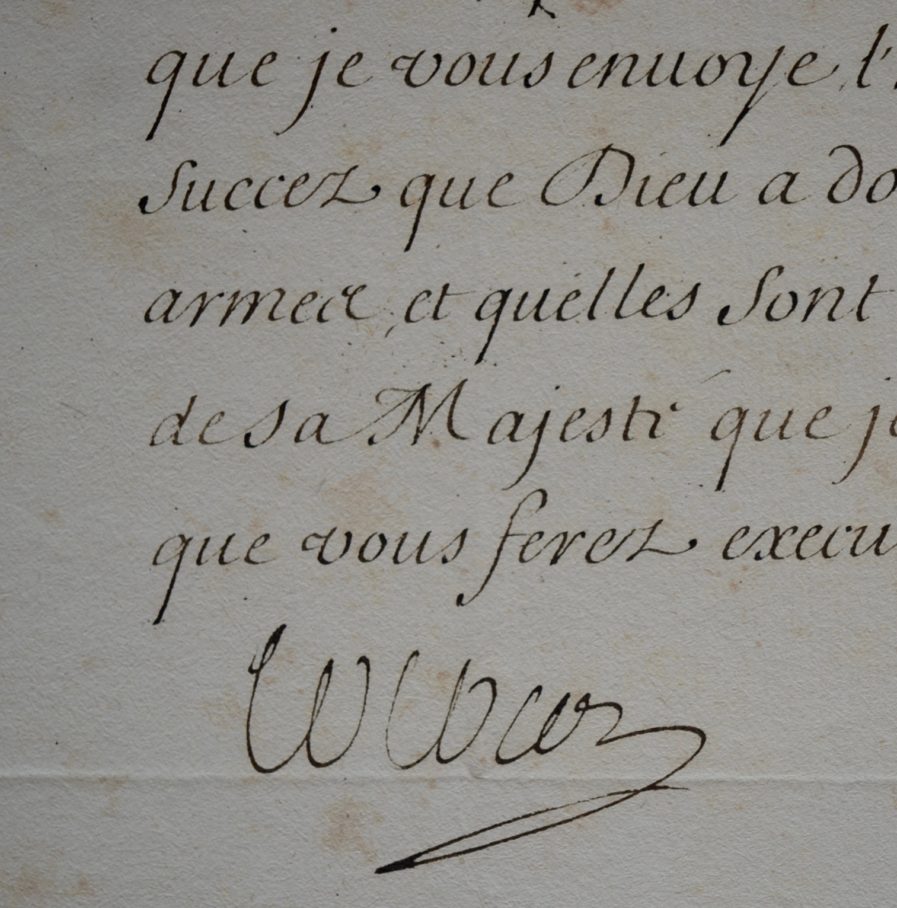 que je vous enuoye l'
Succez que Dieu a do
armeé, et quelles Sont
de Sa Majesté que je
que vous ferez execu